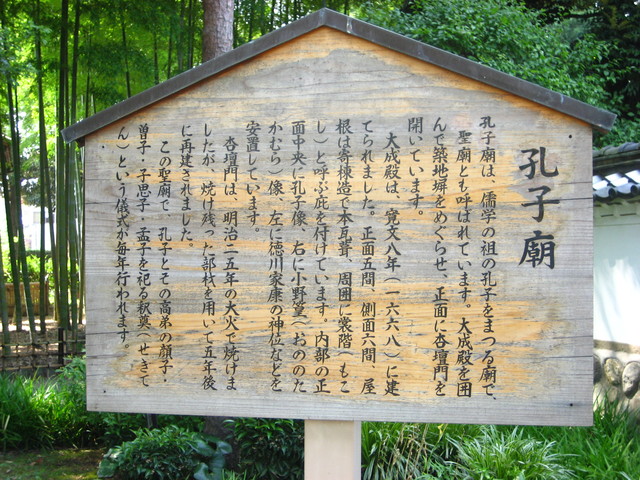 孔子廟
孔子廟は、儒学の祖の孔子をまつる廟で、
聖廟とも呼ばれています。大成殿を囲
んで築地塀をめぐらせ、正面に杏壇門を
開いています。
大成殿は、寛文八年(一六六八)に建
てられました。正面五間、側面六間、屋
根は寄棟造で本瓦葺、周囲に裳階(もこ
し)と呼ぶ庇を付けています。内部の正
面中央に孔子像、右に小野篁(おののた
かむら)像、左に徳川家康の神位などを
安置しています。
杏壇門は、明治二五年の大火で焼けま
したが、焼け残った部材を用いて五年後
に再建されました。
この聖廟で、孔子とその高弟の顔子・
曽子・子思子・孟子を祀る釈奠(せきて
ん)という儀式が毎年行われます。